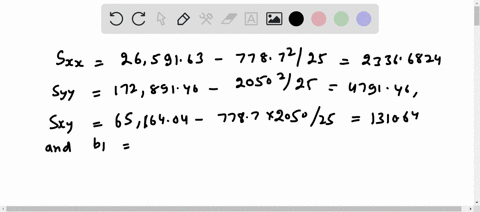 Sxx = 26,591.63 - 778.7²/25 = 2336.6824
Syy = 172,891.46 - 2050²/25 = 4791.46,
Sxy = 65,164.04 - 778.7 × 2050/25 = 1310.64
and b1 =